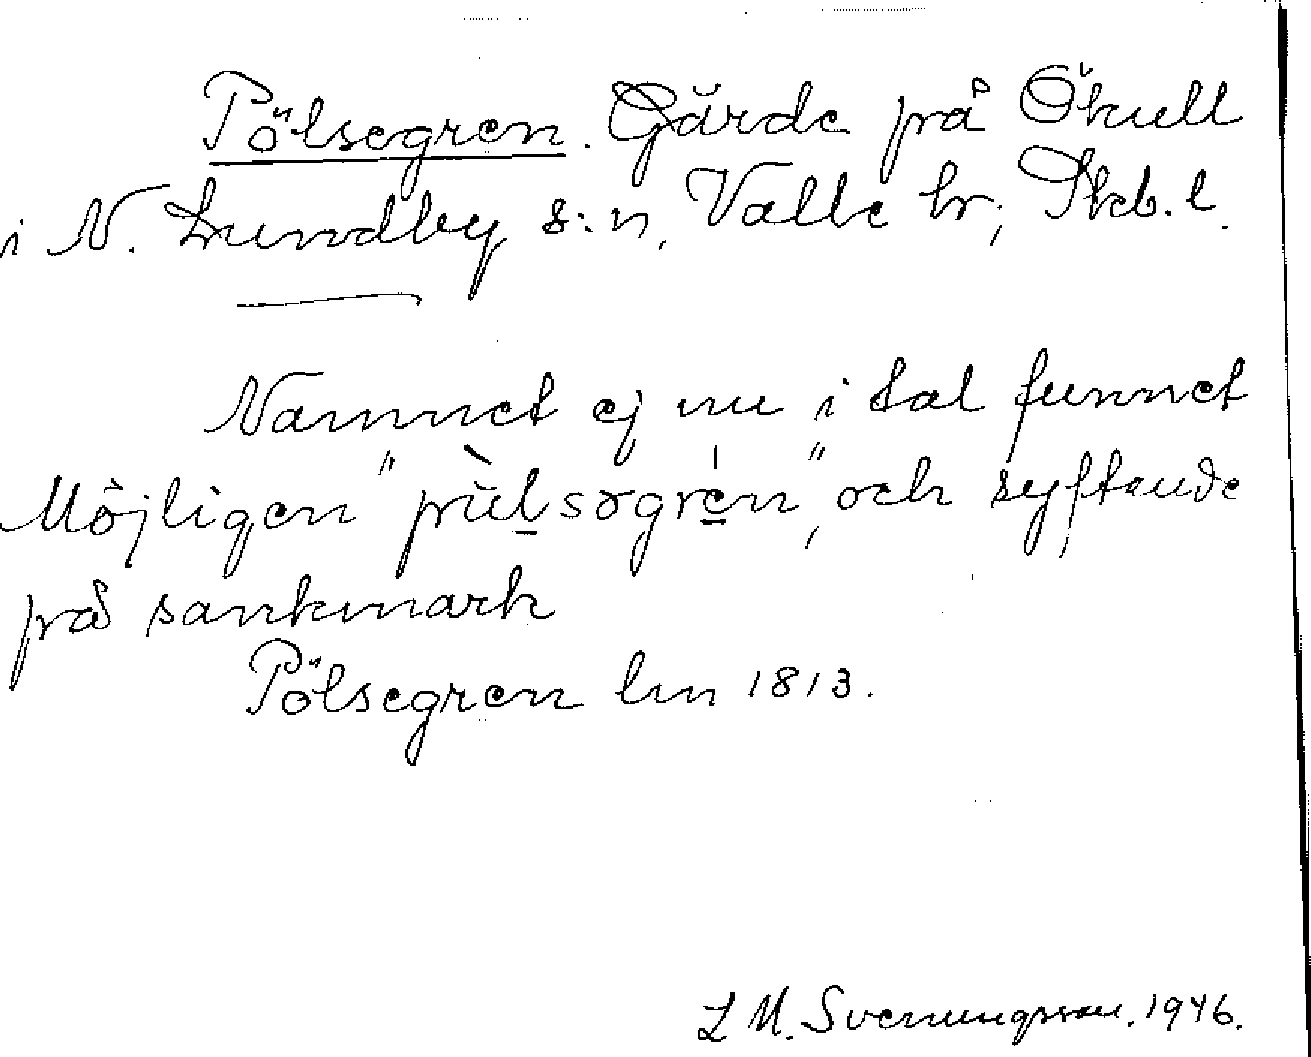 Pölsegren. Gärde på Ökull
i N. Lundby s:n, Valle hr; Skb. l.
Namnet ej nu i tal funnet
Möjligen "pùlsogrén", och syftande
på sankmark
Pölsegren lm 1813.
L M. Svenungsson. 1946.